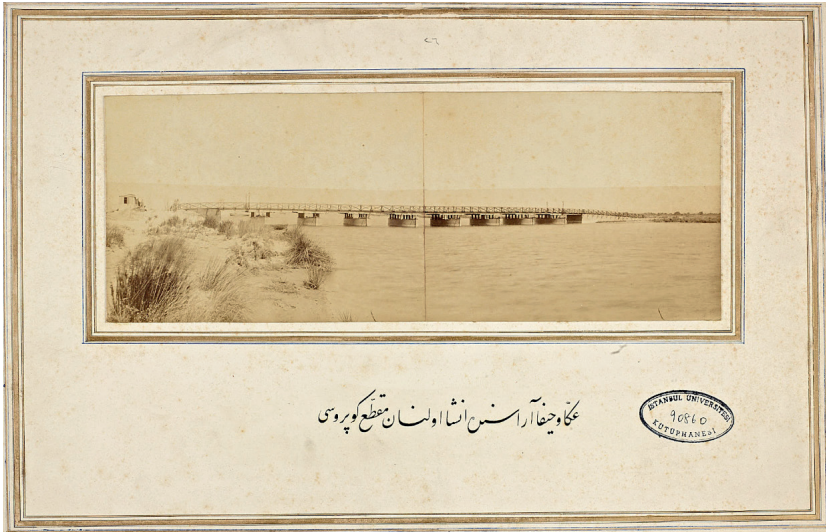 عكا و حیفا آراسنده انشا اولنان مقطّع كوپروسی
ISTANBUL UNIVERSITESI
90860
KUTUPHANESI